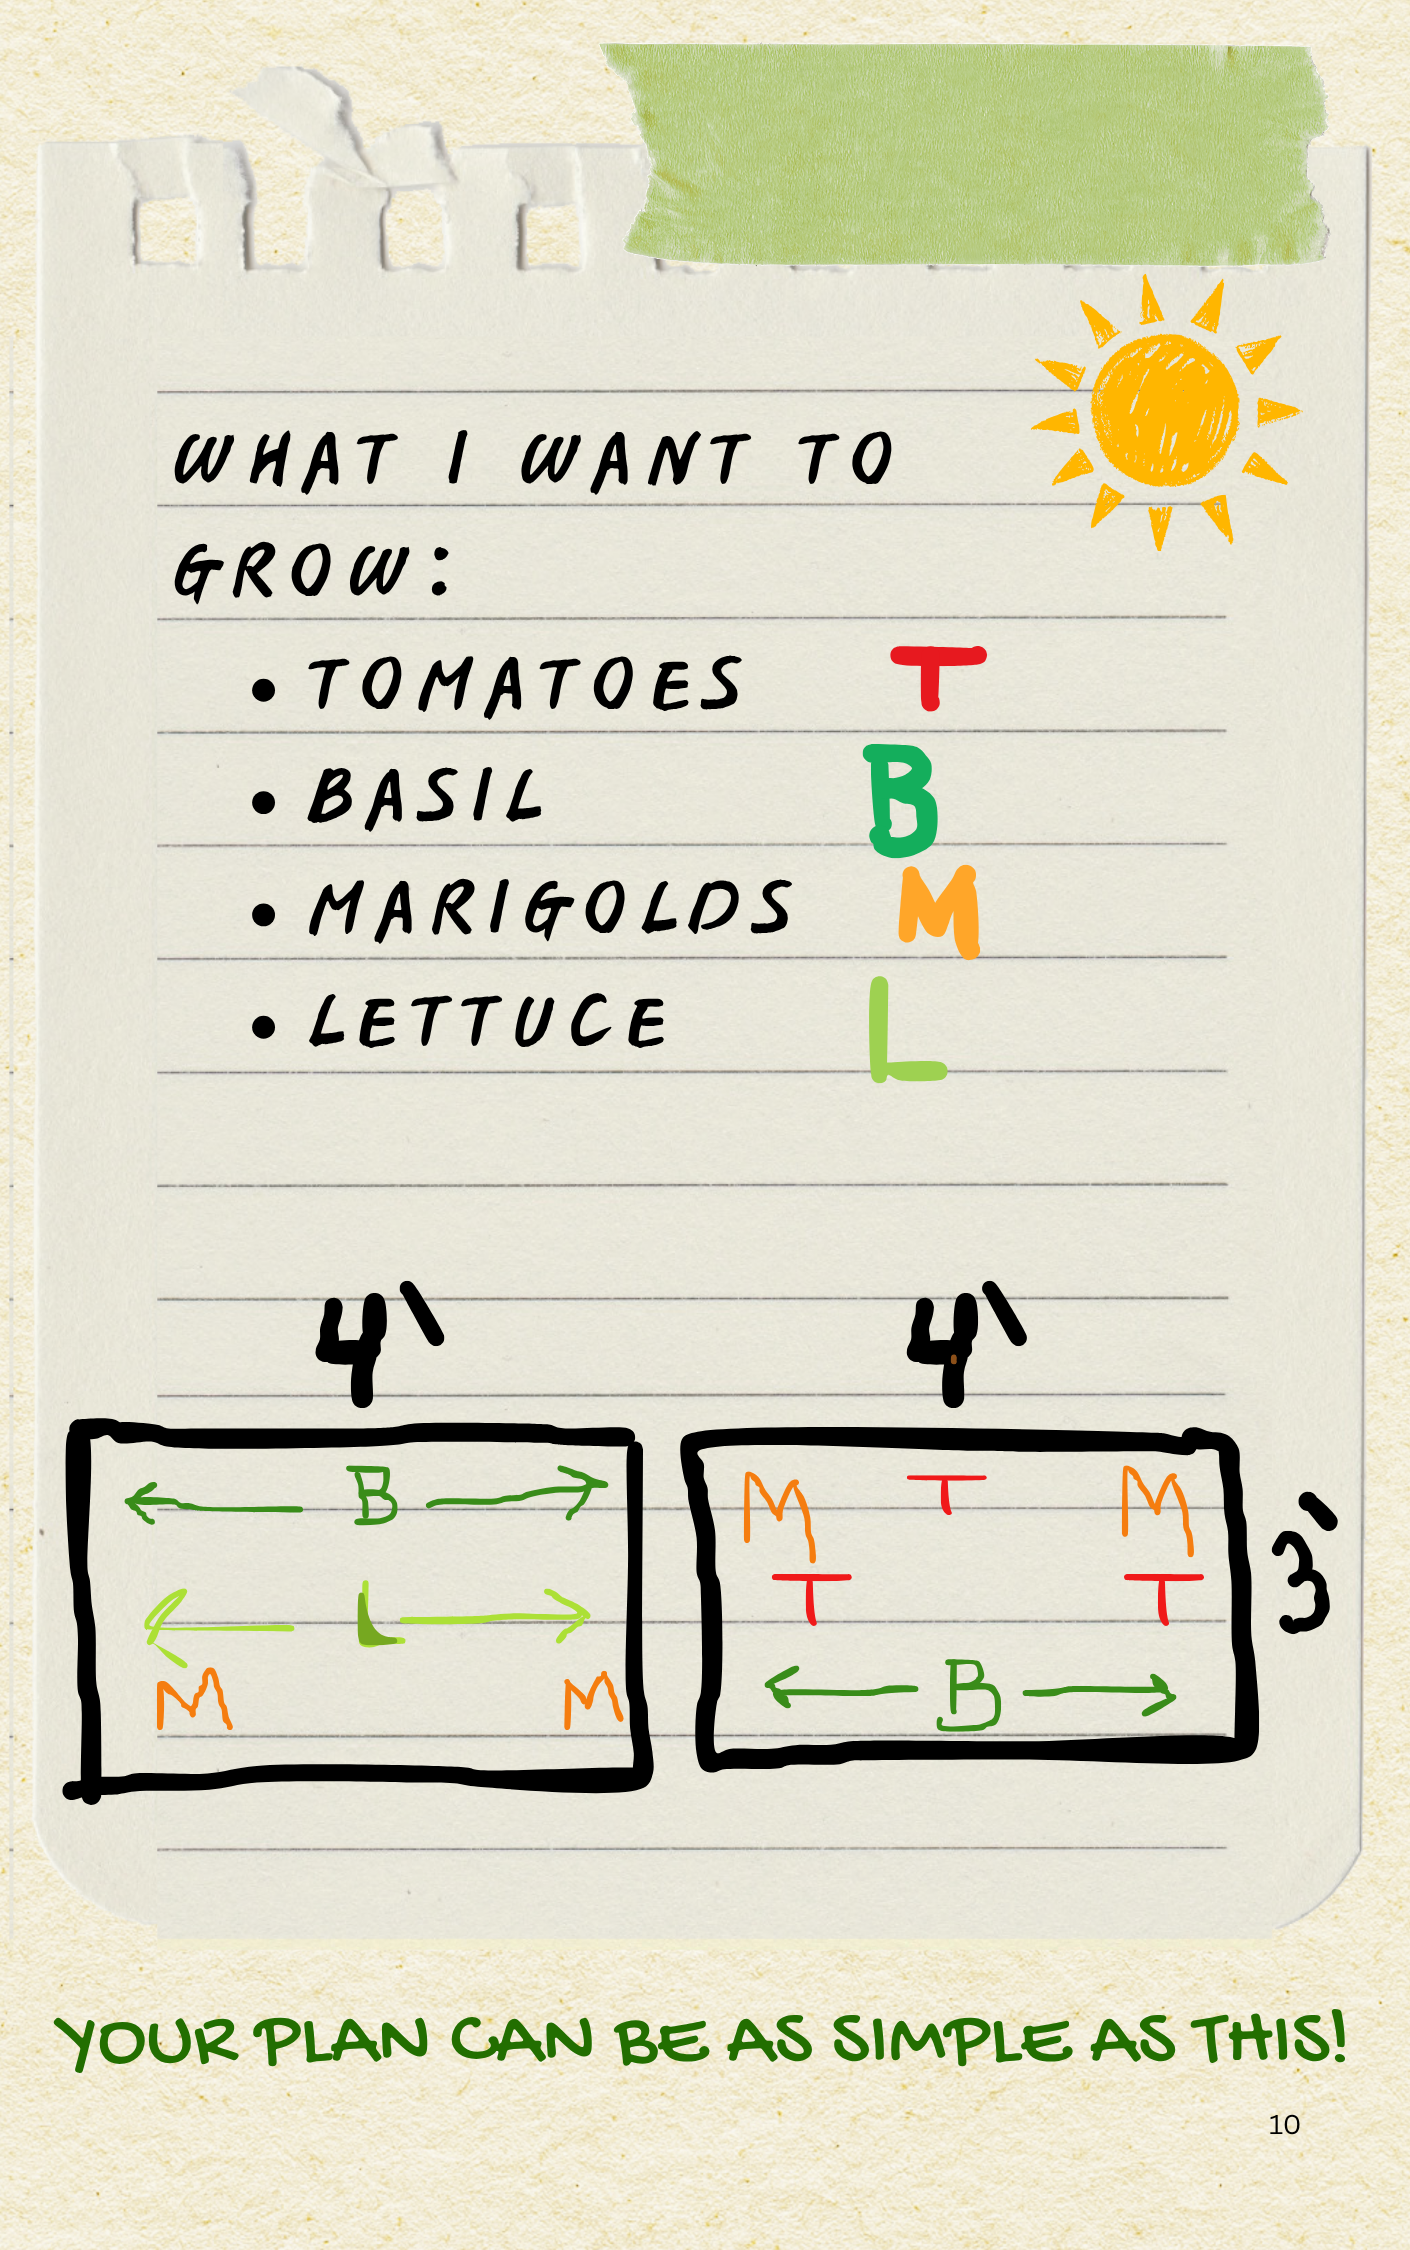 WHAT I WANT TO
GROW:
• TOMATOES T
• BASIL B
• MARIGOLDS M
• LETTUCE L
4' 4'
B M T M
L T T 3'
M M B
YOUR PLAN CAN BE AS SIMPLE AS THIS!
10